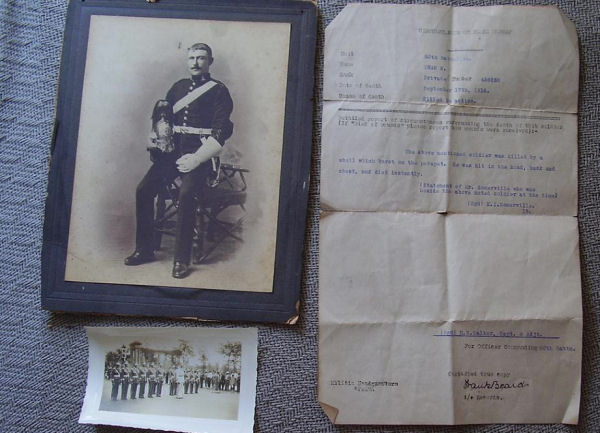 CIRCUMSTANCES OF DEATH REPORT
Unit
Name
Rank
Date of death September 17th, 1916.
Cause of death Killed in action.
Detailed report of circumstances surrounding the death of this soldier
(If "Died of Wounds" please report how wounds were received):-
The above mentioned soldier was killed by a
shell which burst on the parapet. He was hit in the head, back and
chest, and died instantly.
(Statement of Mr. Somerville who was
beside the above noted soldier at the time)
(Sgd) Somerville.
Capt. & Adjt.
For Officer Commanding Battn.
Certified true copy
Militia Headquarters
Frank Beard
i/c Records.